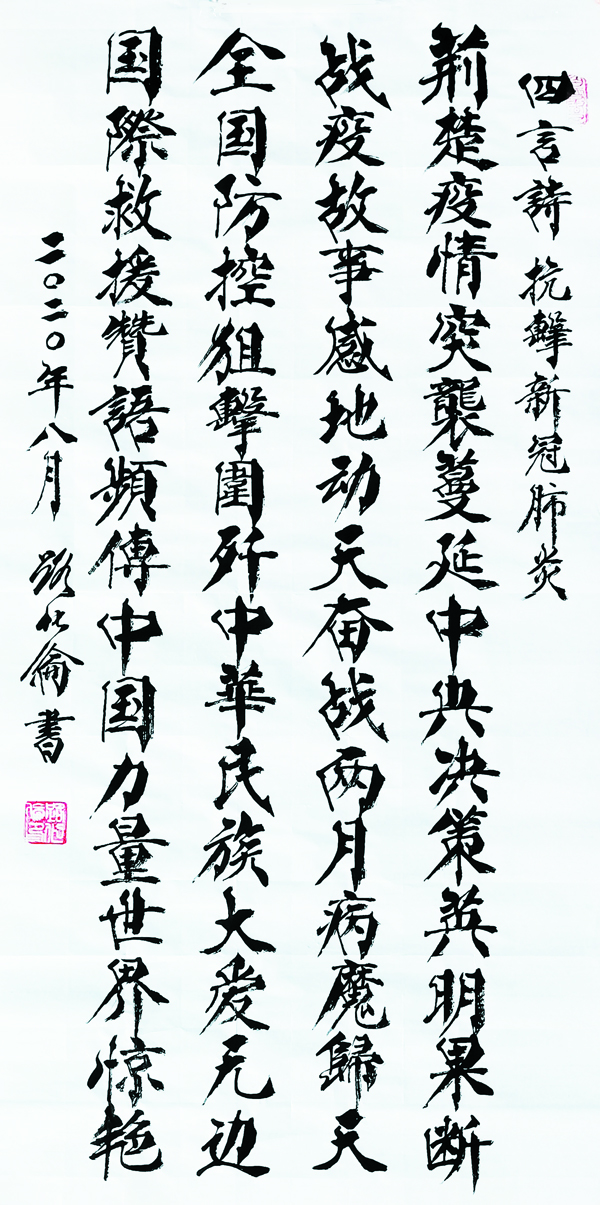 四言詩 抗擊新冠肺炎
荊楚疫情突襲蔓延中央决策英明果断
战疫故事感地动天奋战两月病魔歸天
全国防控狙擊圍歼中華民族大爱无边
国際救援贊語頻傳中国力量世界惊艳
二〇二〇年八月 路仕倫書